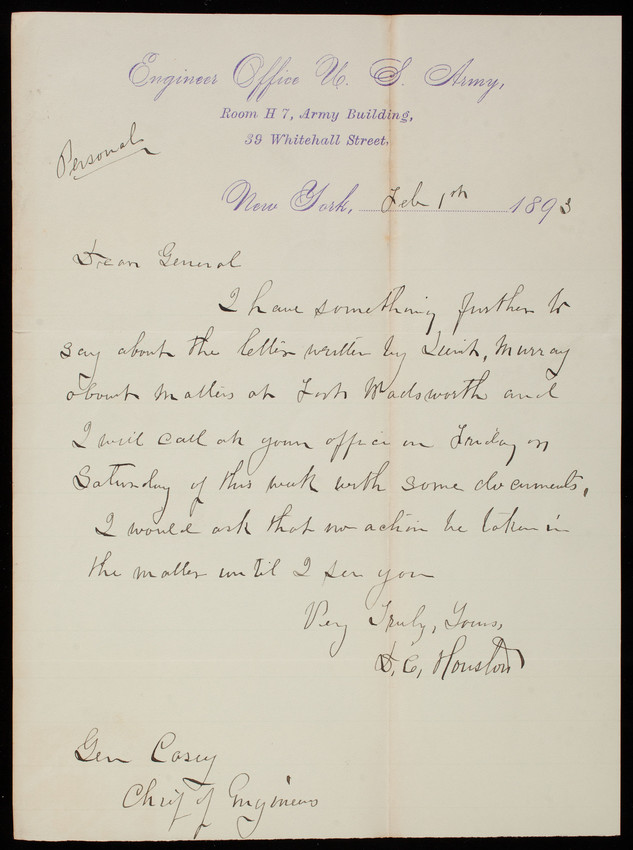 Engineer Office U. S. Army,
Room H 7, Army Building,
39 Whitehall Street.
Personal
New York, Feb 1st 1893
Dear General
I have something further to
say about the letter written by Lieut. Murray
about matters at Fort Wadsworth and
I will call at your office on Friday or
Saturday of this week with some documents.
I would ask that no action be taken in
the matter until I see you
Very Truly, Yours,
D. C. Houston
Gen Casey
Chief of Engineers